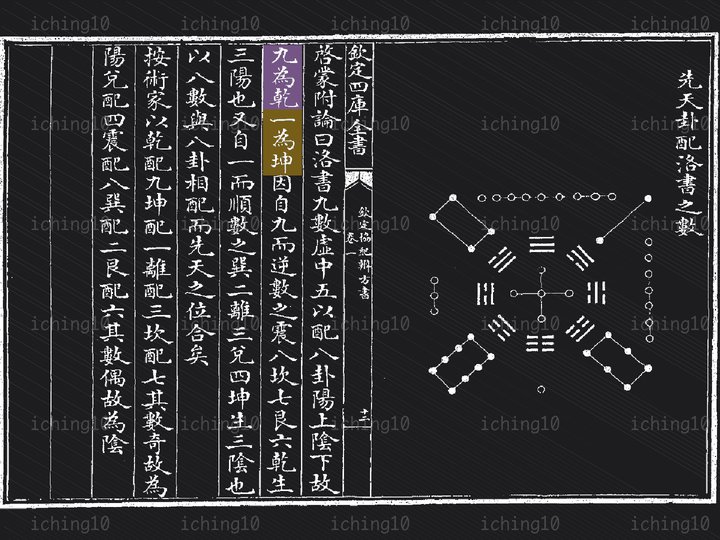 先天卦配洛書之數
欽定四庫全書
欽定協紀辨方書
卷一
啓蒙附論曰洛書九數虛中五以配八卦陽上陰下故
九為乾一為坤因自九而逆數之震八坎七艮六乾生
三陽也又自一而順數之巽二離三兌四坤生三陰也
以八數與八卦相配而先天之位合矣
按術家以乾配九坤配一離配三坎配七其數奇故為
陽兌配四震配八巽配二艮配六其數偶故為陰
iching10 iching10 iching10 iching10 iching10
iching10 iching10 iching10 iching10 iching10
iching10 iching10 iching10 iching10 iching10
iching10 iching10 iching10 iching10 iching10
iching10 iching10 iching10 iching10 iching10
iching10 iching10 iching10 iching10 iching10